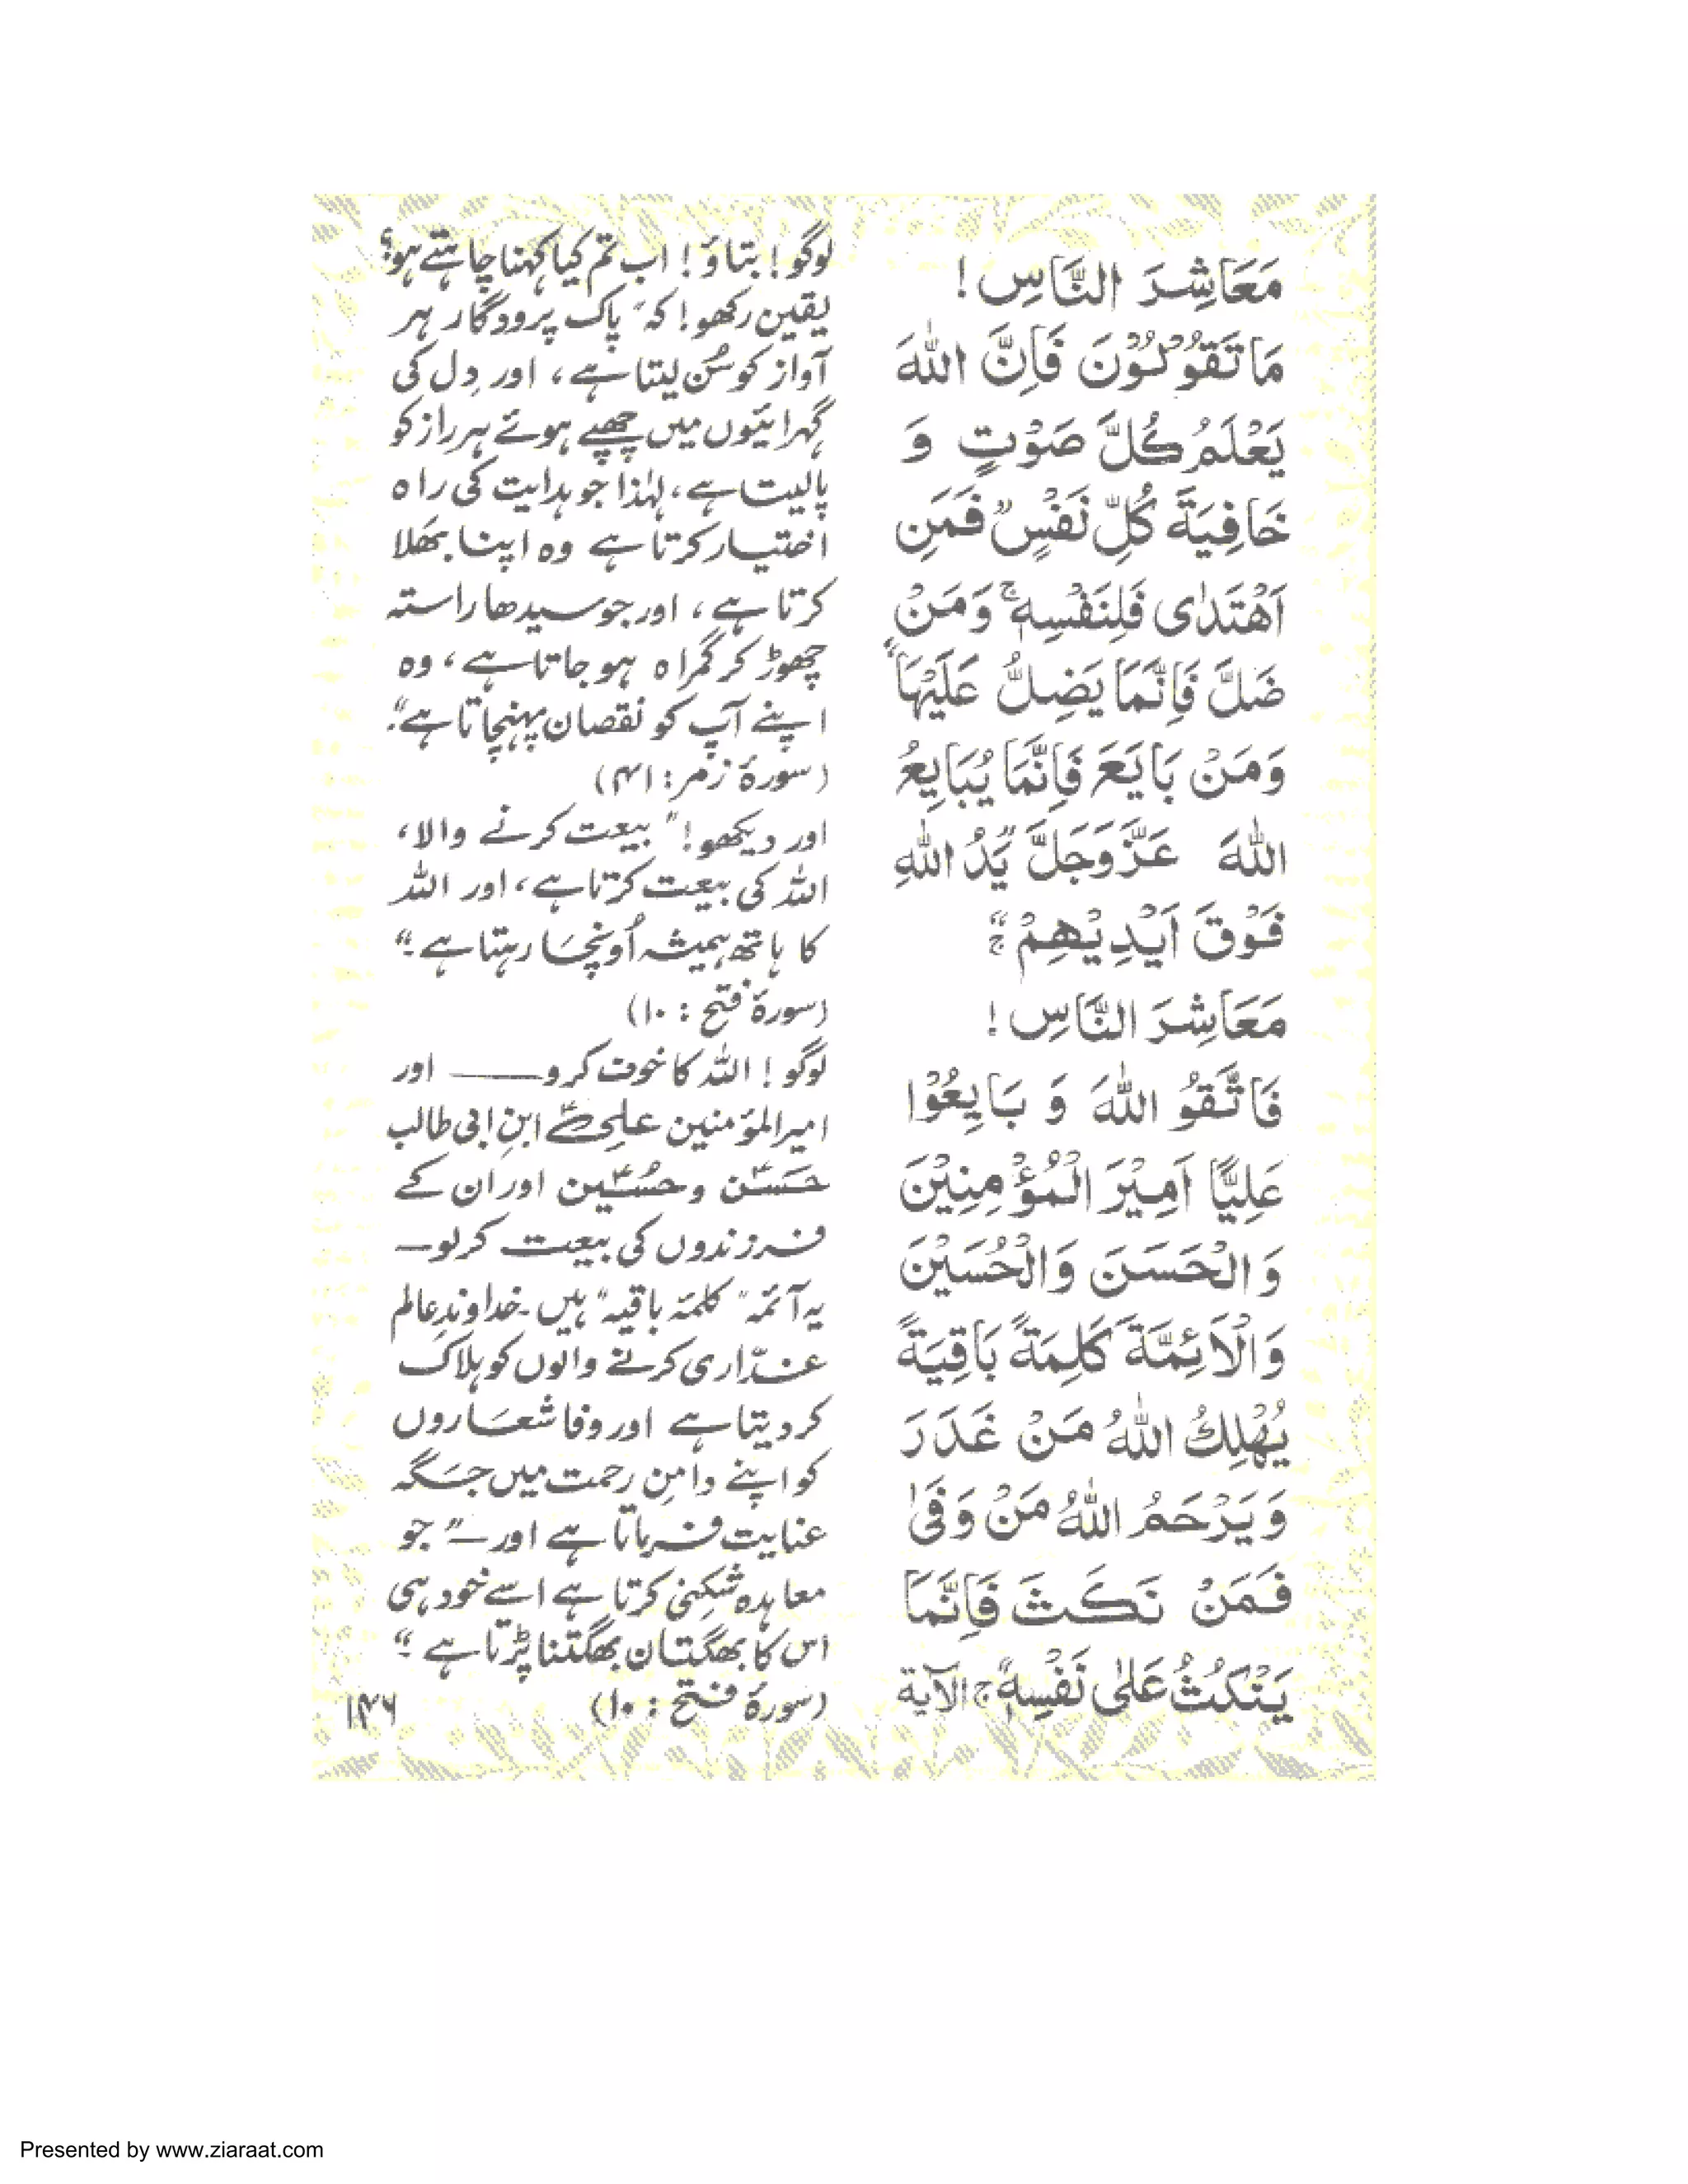 مَعَاشِرَ النَّاسِ!
مَا تَقُوْلُوْنَ فَاِنَّ اللّٰهَ
يَعْلَمُ كُلَّ صَوْتٍ وَ
خَافِيَةَ كُلِّ نَفْسٍ فَمَنِ
اَهْتَدٰى فَلِنَفْسِهٖ ۚ وَمَنْ
ضَلَّ فَاِنَّمَا يَضِلُّ عَلَيْهَا ”
وَمَنْ بَايَعَ فَاِنَّمَا يُبَايِعُ
اللّٰهَ عَزَّوَجَلَّ ”يَدُ اللّٰهِ
فَوْقَ اَيْدِيْهِمْ ۚ“
مَعَاشِرَ النَّاسِ!
فَاتَّقُو اللّٰهَ وَ بَايِعُوْا
عَلِيًّا اَمِيْرَ الْمُؤْمِنِيْنَ
وَالْحَسَنَ وَالْحُسَيْنَ
وَالْاَئِمَّةَ كَلِمَةً بَاقِيَةً
يُهْلِكُ اللّٰهُ مَنْ غَدَرَ
وَيَرْحَمُ اللّٰهُ مَنْ وَفٰى
فَمَنْ نَكَثَ فَاِنَّمَا
يَنْكُثُ عَلٰى نَفْسِهٖ ۚ الآية
لوگو! بتاؤ! اب تم کیا کہنا چاہتے ہو؟
یقین رکھو! کہ “پاک پروردگار ہر
آواز کو سُن لیتا ہے، اور دِل کی
گہرائیوں میں چھپے ہوئے ہر راز کو
پالیتا ہے، لہٰذا جو ہدایت کی راہ
اختیار کرتا ہے وہ اپنا بھلا
کرتا ہے، اور جو سیدھا راستہ
چھوڑ کر گمراہ ہوجاتا ہے، وہ
اپنے آپ کو نقصان پہنچاتا ہے“۔
(سورۂ زمر: ۴۱)
اور دیکھو! ”بیعت کرنے والا،
اللہ کی بیعت کرتا ہے، اور اللہ
کا ہاتھ ہمیشہ اُونچا رہتا ہے“۔
(سورۂ فتح: ۱۰)
لوگو! اللہ کا خوف کرو —— اور
امیرالمؤمنین علیؑ ابنِ ابی طالب
حسنؑ و حسینؑ اور ان کے
فرزندوں کی بیعت کرلو۔
یہ آئمہ ”کلمۂ باقیہ“ ہیں۔ خداوندِ عالم
غدّاری کرنے والوں کو ہلاک
کردیتا ہے اور وفا شعاروں
کو اپنے دامنِ رحمت میں جگہ
عنایت فرماتا ہے اور —”جو
معاہدہ شکنی کرتا ہے اسے خود ہی
اس کا بھگتان بھگتنا پڑتا ہے“۔
(سورۂ فتح: ۱۰)
۱۴۶
Presented by www.ziaraat.com